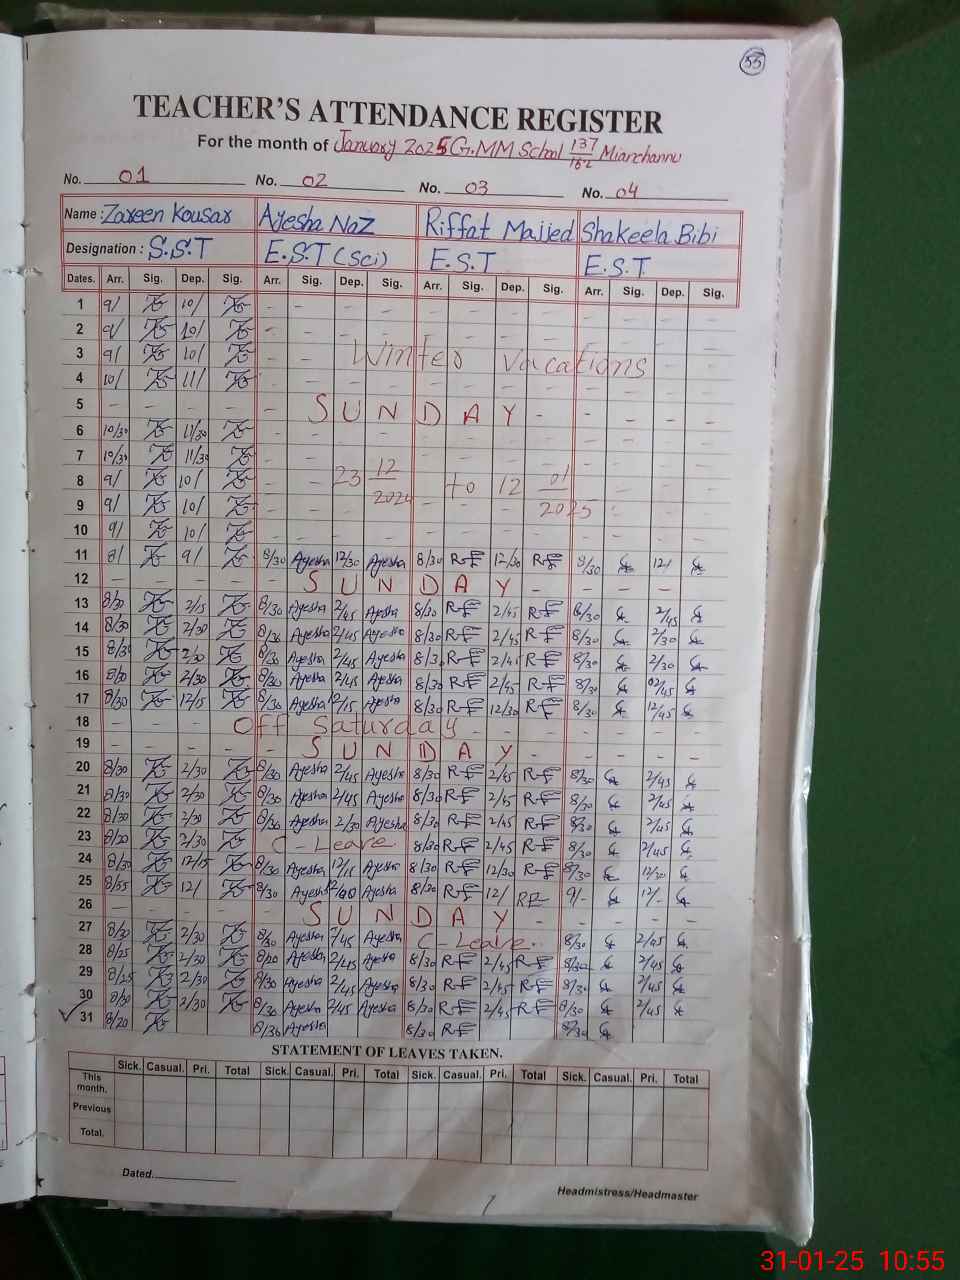 55
TEACHER'S ATTENDANCE REGISTER
For the month of January 2025 G.MM School 137/16-L Mianchannu
No. 01 No. 02 No. 03 No. 04
Name : Zareen Kousar Ayesha Naz Riffat Majied Shakeela Bibi
Designation : S.S.T E.S.T (Sci) E.S.T E.S.T
Dates. Arr. Sig. Dep. Sig. Arr. Sig. Dep. Sig. Arr. Sig. Dep. Sig. Arr. Sig. Dep. Sig.
1 9/ 10/
2 9/ 10/
3 9/ 10/ Winter vacations
4 10/ 11/
5 SUNDAY
6 10/30 11/30
7 10/30 11/30
8 9/ 10/ 23 12/2024 to 12 01/2025
9 9/ 10/
10 9/ 10/
11 8/ 9/ 8/30 Ayesha 12/30 Ayesha 8/30 RF 12/30 RF 8/30 12/
12 SUNDAY
13 8/30 2/15 8/30 Ayesha 2/45 Ayesha 8/30 RF 2/45 RF 8/30 2/45
14 8/30 2/30 8/30 Ayesha 2/45 Ayesha 8/30 RF 2/45 RF 8/30 2/30
15 8/30 2/30 8/30 Ayesha 2/45 Ayesha 8/30 RF 2/45 RF 8/30 2/30
16 8/30 2/30 8/30 Ayesha 2/45 Ayesha 8/30 RF 2/45 RF 8/30 02/45
17 8/30 12/15 8/30 Ayesha 12/15 Ayesha 8/30 RF 12/30 RF 8/30 12/45
18 Off Saturday
19 SUNDAY
20 8/30 2/30 8/30 Ayesha 2/45 Ayesha 8/30 RF 2/45 RF 8/30 2/45
21 8/30 2/30 8/30 Ayesha 2/45 Ayesha 8/30 RF 2/45 RF 8/30 2/45
22 8/30 2/30 8/30 Ayesha 2/30 Ayesha 8/30 RF 2/45 RF 8/30 2/45
23 8/20 2/30 C - Leave 8/30 RF 2/45 RF 8/30 2/45
24 8/30 12/15 8/30 Ayesha 12/15 Ayesha 8/30 RF 12/30 RF 8/30 12/30
25 8/55 12/ 8/30 Ayesha Ayesha 8/30 RF 12/ RF 9/- 12/-
26 SUNDAY
27 8/30 2/30 8/30 Ayesha 2/45 Ayesha C - Leave. 8/30 2/45
28 8/25 2/30 8/20 Ayesha 2/45 Ayesha 8/30 RF 2/45 RF 8/30 2/45
29 8/25 2/30 8/30 Ayesha 2/45 Ayesha 8/30 RF 2/45 RF 8/30 2/45
30 8/30 2/30 8/30 Ayesha 2/45 Ayesha 8/30 RF 2/45 RF 8/30 2/45
31 8/20 8/30 Ayesha 8/30 RF 8/30
STATEMENT OF LEAVES TAKEN.
Sick. Casual. Pri. Total Sick. Casual. Pri. Total Sick. Casual. Pri. Total Sick. Casual. Pri. Total
This month.
Previous
Total.
Dated.
Headmistress/Headmaster
31-01-25 10:55